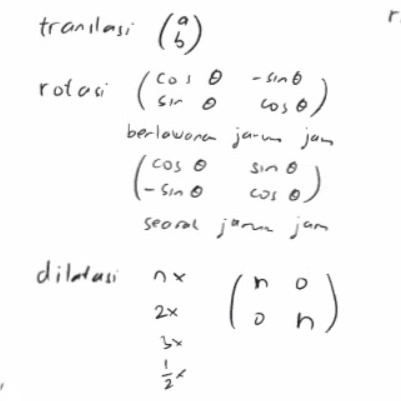 translasi (a b)
rotasi (cos θ -sin θ
sin θ cos θ)
berlawanan jarum jam
(cos θ sin θ
-sin θ cos θ)
searah jarum jam
dilatasi nx (n 0
2x 0 n)
3x
1/2x